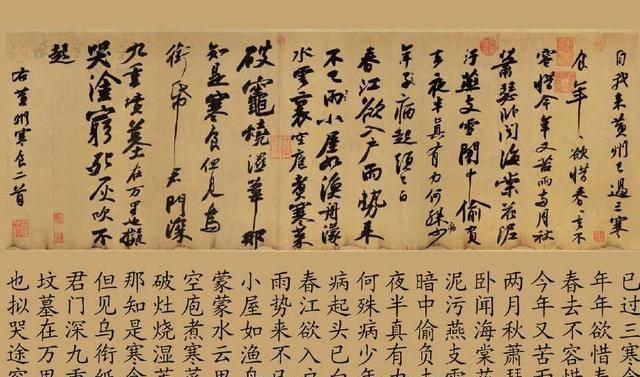 自我来黄州已過三寒
食年、欲惜春、去不
容惜今年又苦雨两月秋
蕭瑟卧聞海棠花泥
汙燕支雪闇中偷負
去夜半真有力何殊病少
年子病起頭已白
春江欲入户雨勢来
不已雨小屋如漁舟濛濛
水雲裏空庖煮寒菜
破竈燒濕葦那
知是寒食但見烏
銜帋君門深
九重墳墓在万里也擬
哭塗窮死灰吹不
起
右黄州寒食二首
已过三寒食
年年欲惜春
春去不容惜
今年又苦雨
两月秋萧瑟
卧闻海棠花
泥污燕支雪
暗中偷负去
夜半真有力
何殊病少年
病起头已白
春江欲入户
雨势来不已
小屋如渔舟
蒙蒙水云里
空庖煮寒菜
破灶烧湿苇
那知是寒食
但见乌衔纸
君门深九重
坟墓在万里
也拟哭途穷